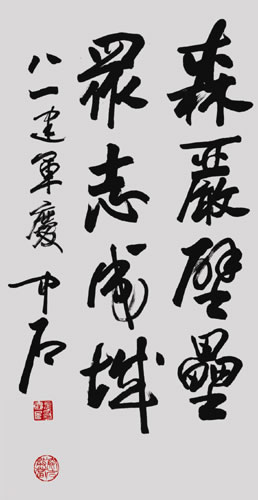 森嚴壁壘
眾志成城
八一建軍慶 中石